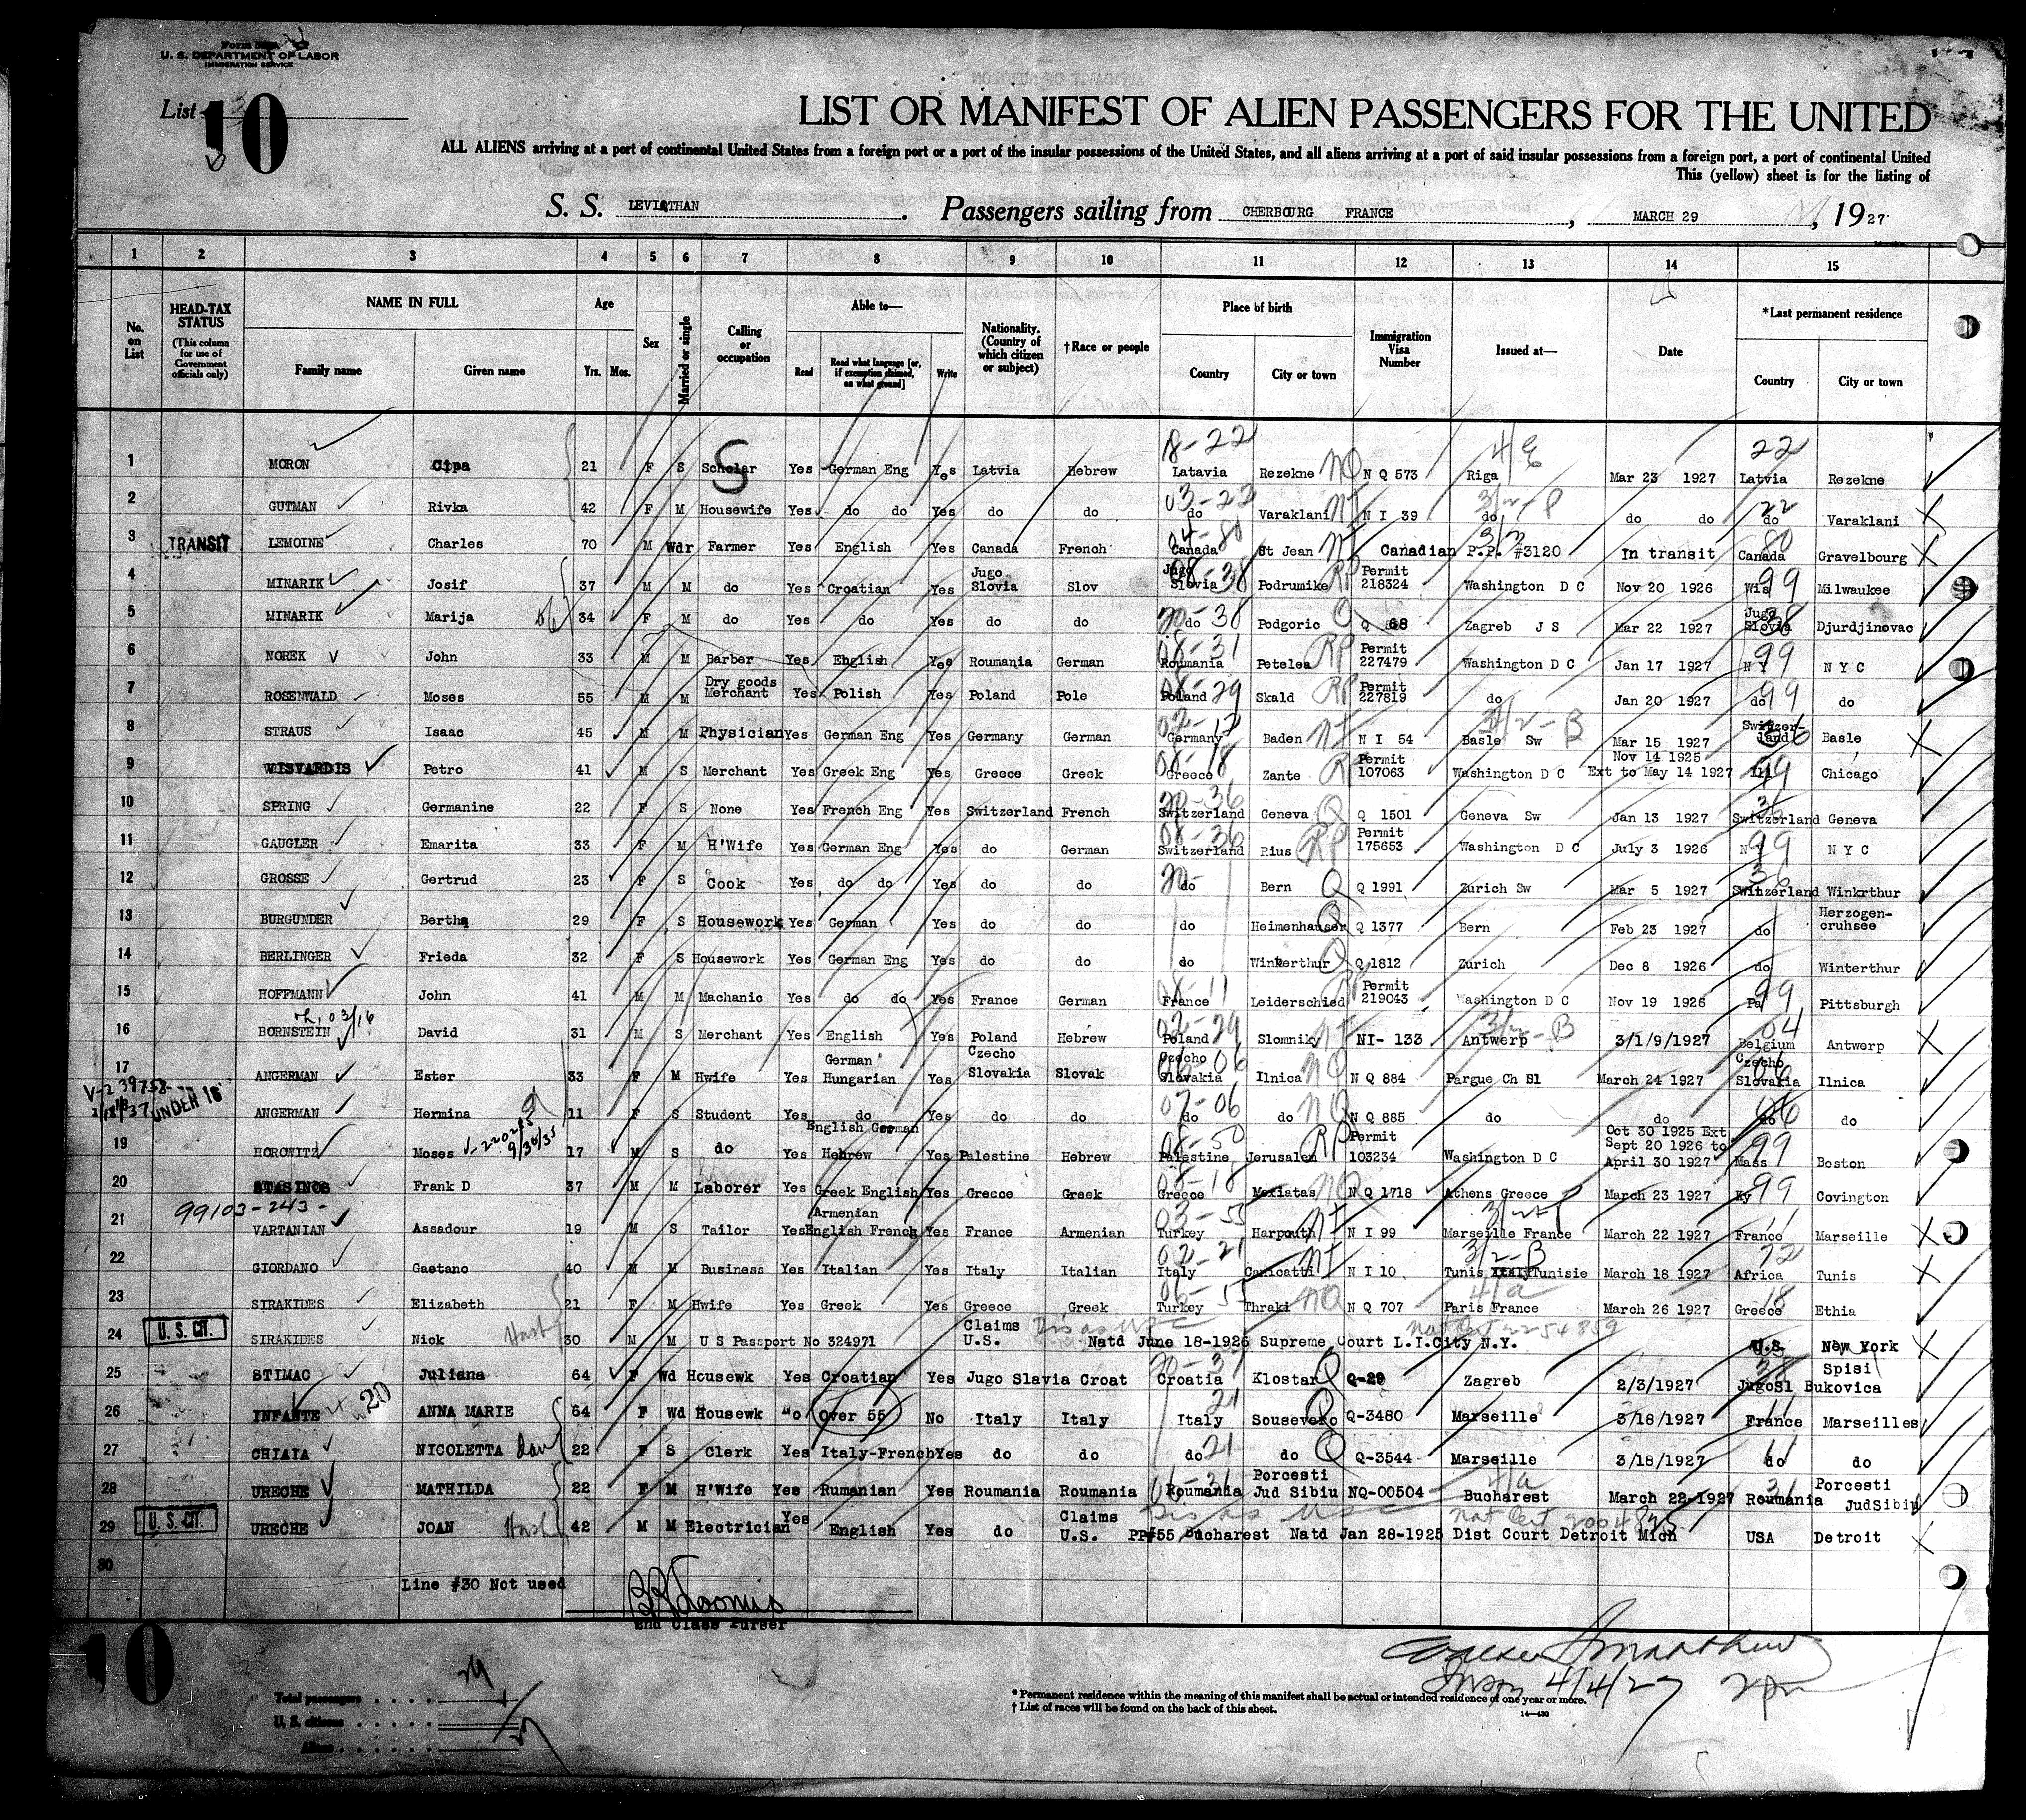 U. S. DEPARTMENT OF LABOR
IMMIGRATION SERVICE
List 3
10
LIST OR MANIFEST OF ALIEN PASSENGERS FOR THE UNITED
ALL ALIENS arriving at a port of continental United States from a foreign port or a port of the insular possessions of the United States, and all aliens arriving at a port of said insular possessions from a foreign port, a port of continental United
This (yellow) sheet is for the listing of
S. S. LEVIATHAN . Passengers sailing from CHERBOURG FRANCE , MARCH 29 , 1927
1 2 3 4 5 6 7 8 9 10 11 12 13 14 15
No. on List HEAD-TAX STATUS (This column for use of Government officials only) NAME IN FULL Family name Given name Age Yrs. Mos. Sex Married or single Calling or occupation Able to— Read Read what language [or, if exemption claimed, on what ground] Write Nationality. (Country of which citizen or subject) †Race or people Place of birth Country City or town Immigration Visa Number Issued at— Date *Last permanent residence Country City or town
1 MORON Cipa 21 F S Scholar Yes German Eng Yes Latvia Hebrew 8-22 Latavia Rezekne NQ N Q 573 Riga Mar 23 1927 22 Latvia Rezekne
2 GUTMAN Rivka 42 F M Housewife Yes do do Yes do do 03-22 do Varaklani NI N I 39 do do do 22 do Varaklani
3 TRANSIT LEMOINE Charles 70 M Wdr Farmer Yes English Yes Canada French 04-80 Canada St Jean NI Canadian P.P. #3120 In transit 80 Canada Gravelbourg
4 MINARIK Josif 37 M M do Yes Croatian Yes Jugo Slovia Slov Jugo Slovia 08-38 Podrumike RP Permit 218324 Washington D C Nov 20 1926 Wis 99 Milwaukee
5 MINARIK Marija 34 F M do Yes do Yes do do 20-38 do Podgoric Q Q 68 Zagreb J S Mar 22 1927 Jugo Slovia 38 Djurdjinovac
6 NOREK John 33 M M Barber Yes English Yes Roumania German 08-31 Roumania Petelea RP Permit 227479 Washington D C Jan 17 1927 N Y 99 N Y C
7 ROSENWALD Moses 55 M M Dry goods Merchant Yes Polish Yes Poland Pole 08-29 Poland Skald RP Permit 227819 do Jan 20 1927 do 99 do
8 STRAUS Isaac 45 M M Physician Yes German Eng Yes Germany German Germany Baden NI N I 54 3/2-B Basle Sw Mar 15 1927 Switzer-land 36 Basle
9 WISVARDIS Petro 41 M S Merchant Yes Greek Eng Yes Greece Greek 08-18 Greece Zante RP Permit 107063 Washington D C Nov 14 1925 Ext to May 14 1927 Ill 99 Chicago
10 SPRING Germanine 22 F S None Yes French Eng Yes Switzerland French 20-36 Switzerland Geneva Q Q 1501 Geneva Sw Jan 13 1927 36 Switzerland Geneva
11 GAUGLER Emarita 33 F M H'Wife Yes German Eng Yes do German 08-36 Switzerland Rius RP Permit 175653 Washington D C July 3 1926 N Y 99 N Y C
12 GROSSE Gertrud 23 F S Cook Yes do do Yes do do 20- do Bern Q Q 1991 Zurich Sw Mar 5 1927 36 Switzerland Winkrthur
13 BURGUNDER Bertha 29 F S Housework Yes German Yes do do do Heimenhauser Q Q 1377 Bern Feb 23 1927 do Herzogen-cruhsee
14 BERLINGER Frieda 32 F S Housework Yes German Eng Yes do do do Winterthur Q Q 1812 Zurich Dec 8 1926 do Winterthur
15 HOFFMANN John 41 M M Machanic Yes do do Yes France German 08-11 France Leiderschied RP Permit 219043 Washington D C Nov 19 1926 Pa 99 Pittsburgh
16 BORNSTEIN David 31 M S Merchant Yes English Yes Poland Hebrew 02-29 Poland Slomniki NI NI- 133 3/2-B Antwerp 3/1/9/1927 04 Belgium Antwerp
17 ANGERMAN Ester 33 F M Hwife Yes German Hungarian Yes Czecho Slovakia Slovak Czecho Slovakia 06-06 Ilnica NQ N Q 884 Pargue Ch Sl March 24 1927 Czecho Slovakia 06 Ilnica
UNDER 16 ANGERMAN Hermina 11 F S Student Yes do Yes do do 07-06 do do NQ N Q 885 do do 06 do do
19 HOROWITZ Moses 9/30/35 17 M S do Yes English German Hebrew Yes Palestine Hebrew 08-50 Palestine Jerusalem RP Permit 103234 Washington D C Oct 30 1925 Ext Sept 20 1926 to April 30 1927 Mass 99 Boston
20 STASINOS Frank D 37 M M Laborer Yes Greek English Yes Greece Greek 08-18 Greece Mexiatas NQ N Q 1718 Athens Greece March 23 1927 Ky 99 Covington
99103-243-
21 VARTANIAN Assadour 19 M S Tailor Yes Armenian English French Yes France Armenian 03-55 Turkey Harpouth NI N I 99 Marseille France March 22 1927 France Marseille
22 GIORDANO Gaetano 40 M M Business Yes Italian Yes Italy Italian 02-21 Italy Canicatti NI N I 10 3/2-B Tunis Tunisie March 18 1927 72 Africa Tunis
23 SIRAKIDES Elizabeth 21 F M Hwife Yes Greek Yes Greece Greek 06-55 Turkey Thraki NQ N Q 707 4/a Paris France March 26 1927 18 Greece Ethia
24 U. S. CIT. SIRAKIDES Nick Husb 30 M M U S Passport No 324971 Claims U.S. Dis as USC Natd June 18-1926 Supreme Court L.I.City N.Y. Nat Cert 2254859 U.S. New York
25 STIMAC Juliana 64 F Wd Housewk Yes Croatian Yes Jugo Slavia Croat 20-37 Croatia Klostar Q Q-29 Zagreb 2/3/1927 38 Jugosl Spisi Bukovica
26 INFANTE 20 ANNA MARIE 64 F Wd Housewk No Over 55 No Italy Italy 21 Italy Souseveko Q Q-3480 Marseille 3/18/1927 11 France Marseilles
27 CHIAIA NICOLETTA Dau 22 F S Clerk Yes Italy-French Yes do do do 21 do Q Q-3544 Marseille 3/18/1927 11 do do
28 URECHE MATHILDA 22 F M H'Wife Yes Rumanian Yes Roumania Roumania 06-31 Roumania Porcesti Jud Sibiu NQ-00504 4/a Bucharest March 22-1927 31 Roumania Porcesti JudSibiu
29 U. S. CIT. URECHE JOAN Husb 42 M M Electrician Yes English Yes do Claims U.S. Dis as USC PP#55 Bucharest Natd Jan 28-1925 Dist Court Detroit Mich USA Detroit
30
Line #30 Not used
2nd Class Purser
10
Insp 4/4/27 2pm
Total passengers
U. S. citizens
Aliens
* Permanent residence within the meaning of this manifest shall be actual or intended residence of one year or more.
† List of races will be found on the back of this sheet.
14—430